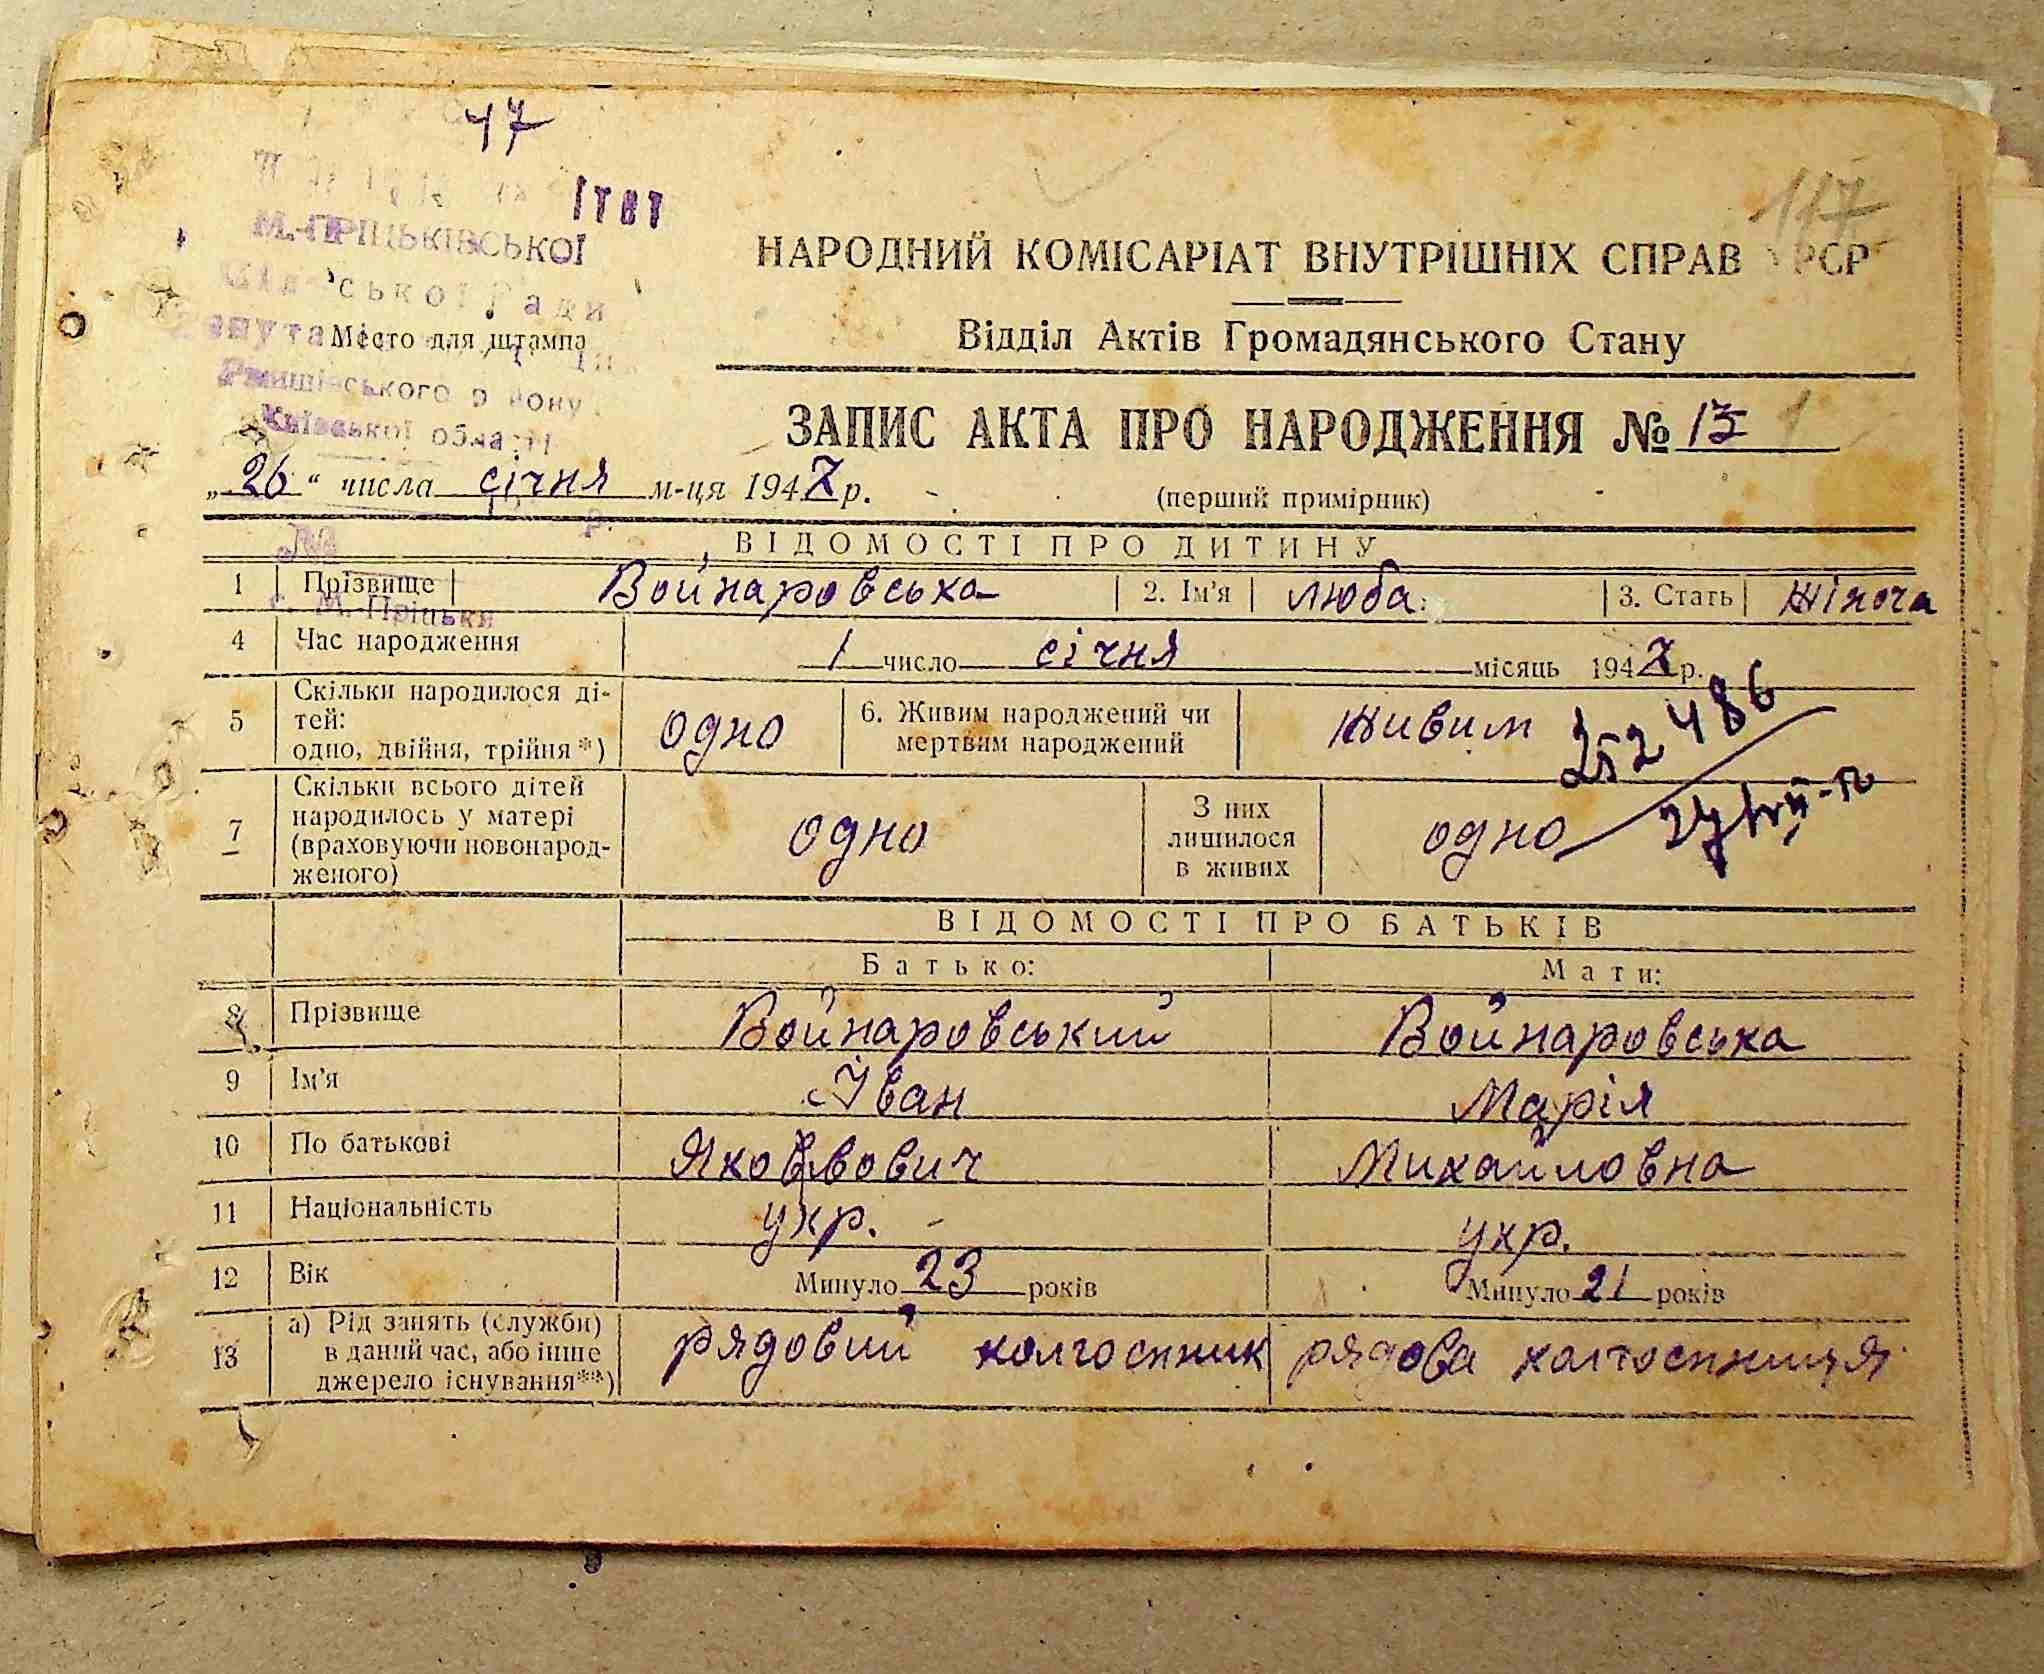 47
117
М.-ПРІЦЬКІВСЬКОЇ
НАРОДНИЙ КОМІСАРІАТ ВНУТРІШНІХ СПРАВ УРСР
Відділ Актів Громадянського Стану
Місто для штампа
Ржищівського району
Київської області
ЗАПИС АКТА ПРО НАРОДЖЕННЯ №
„26“ числа січня м-ця 1947 р.
(перший примірник)
ВІДОМОСТІ ПРО ДИТИНУ
1 Прізвище Войнаровська 2. Ім'я Люба 3. Стать жіноча
с. М.-Пріцьки
4 Час народження 1 число січня місяць 1947 р.
5 Скільки народилося ді-
тей:
одно, двійня, трійня*) одно 6. Живим народжений чи
мертвим народжений живим
252486
7 Скільки всього дітей
народилось у матері
(враховуючи новонарод-
женого) одно З них
лишилося
в живих одно
ВІДОМОСТІ ПРО БАТЬКІВ
Батько: Мати:
8 Прізвище Войнаровський Войнаровська
9 Ім'я Іван Марія
10 По батькові Яковович Михайловна
11 Національність укр. укр.
12 Вік Минуло 23 років Минуло 21 років
13 а) Рід занять (служби)
в даний час, або інше
джерело існування**) рядовий колгоспник рядова колгоспниця